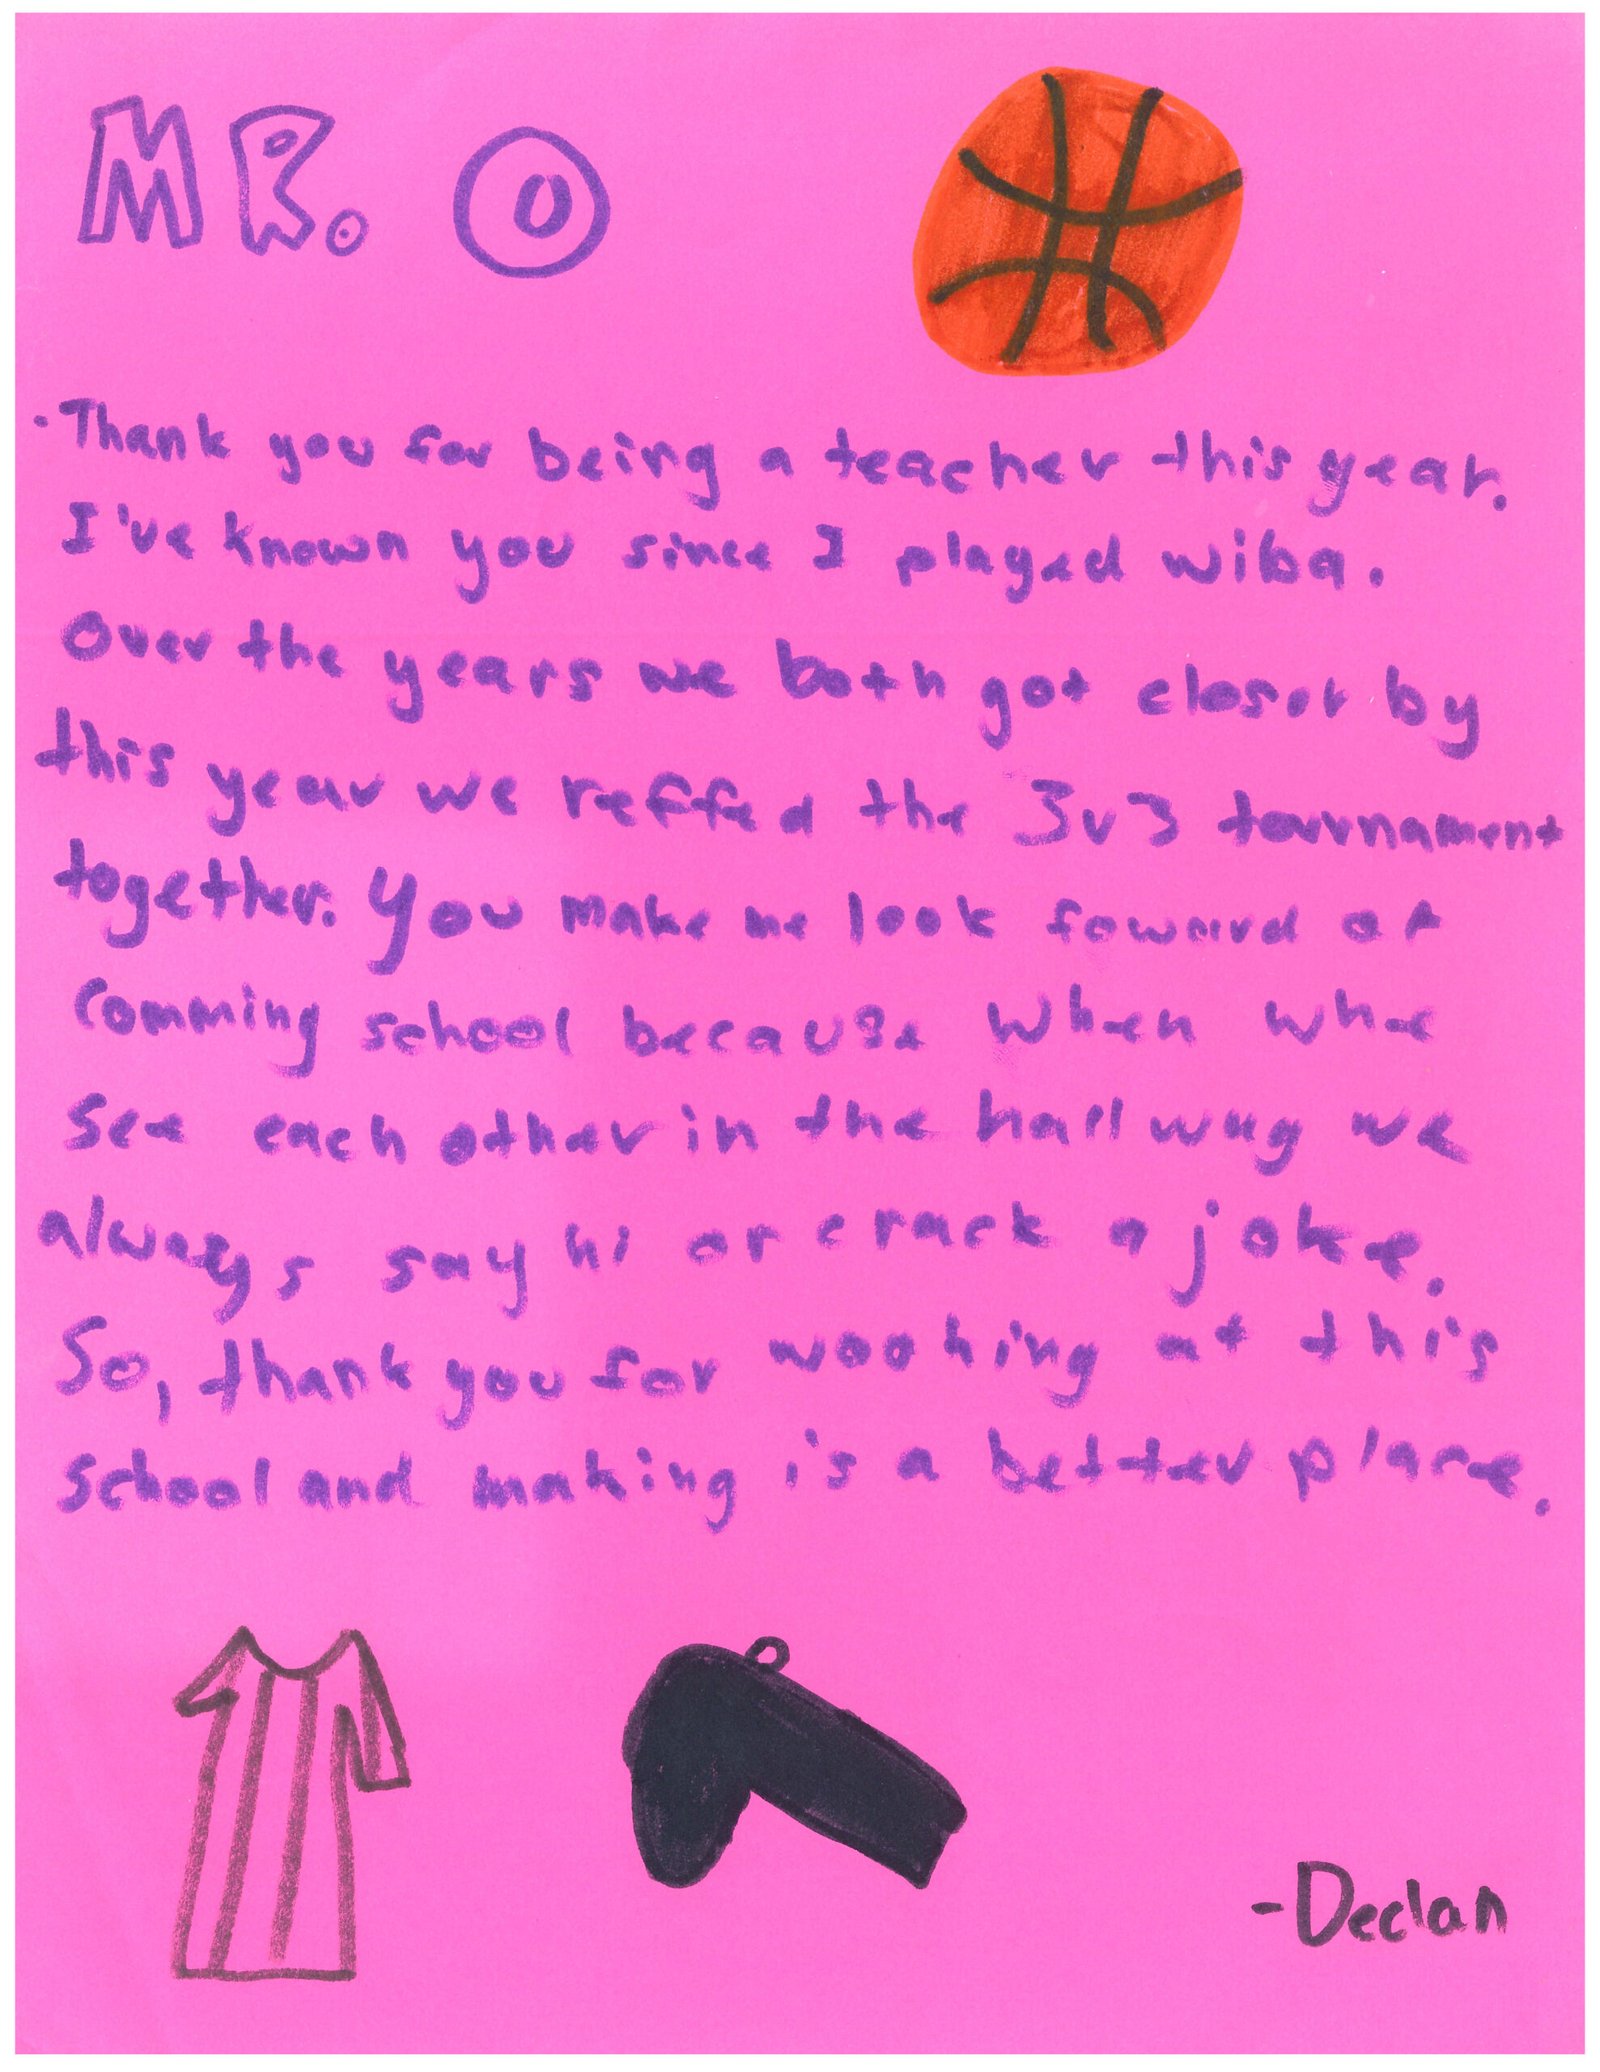 MR. O
·Thank you for being a teacher this year.
I've known you since I played wiba.
Over the years we both got closer by
this year we reffed the 3v3 tournament
together. You make me look foward at
comming school because when whe
see each other in the hallway we
always say hi or crack a joke.
So, thank you for wooking at this
school and making is a better place.
-Declan